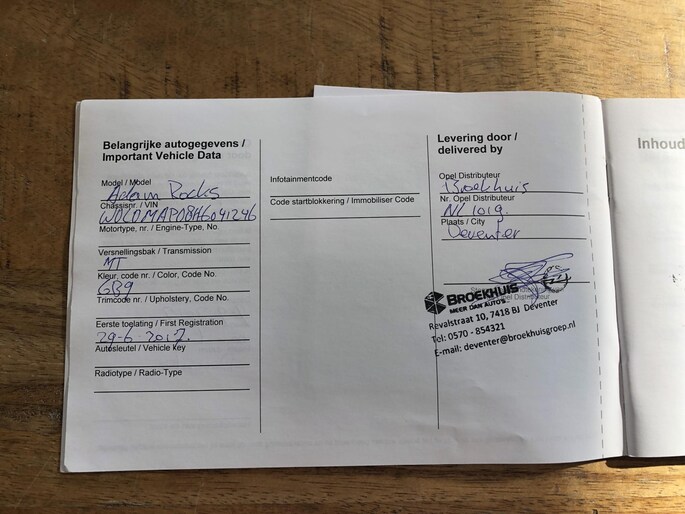 Belangrijke autogegevens /
Important Vehicle Data
Model / Model
Adam Rocks
Chassisnr. / VIN
W0L0MAP08H6041246
Motortype, nr. / Engine-Type, No.
Versnellingsbak / Transmission
MT
Kleur, code nr. / Color, Code No.
GB9
Trimcode nr. / Upholstery, Code No.
Eerste toelating / First Registration
29-6-2017
Autosleutel / Vehicle key
Radiotype / Radio-Type
Infotainmentcode
Code startblokkering / Immobiliser Code
Levering door /
delivered by
Opel Distributeur
Broekhuis
Nr. Opel Distributeur
NL 1019
Plaats / City
Deventer
Opel Distributeur
BROEKHUIS
MEER DAN AUTO'S
Revalstraat 10, 7418 BJ Deventer
Tel: 0570 - 854321
E-mail: deventer@broekhuisgroep.nl
Inhoud